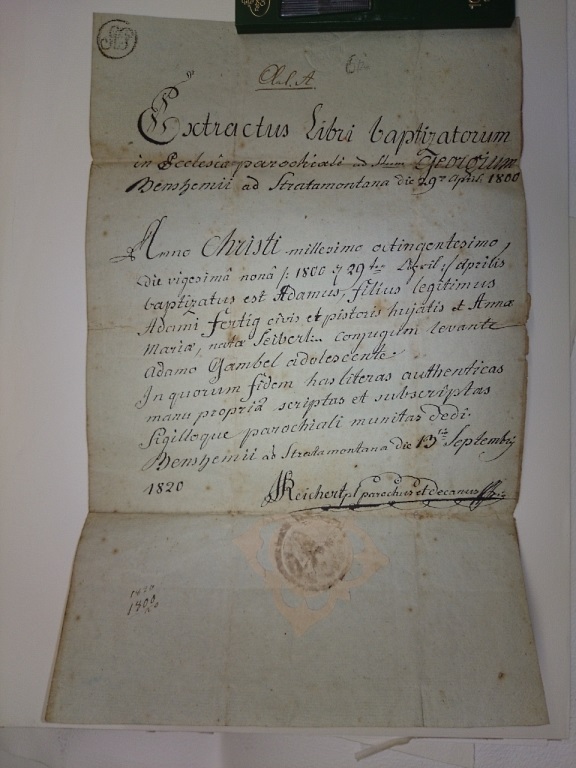 Cl. A
Extractus Libri baptizatorum
in Ecclesia parochiali ad Stum Georgium
Benshemii ad Stratamontana die 29 April 1800
Anno Christi millesimo octingentesimo,
die vigesimâ nonâ /: 1800 29 April :/ aprilis
baptizatus est Adamus, filius legitimus
Adami Fertig civis et pistoris hujatis et Anna
Mariæ, nata Seibert... conjugum levante
Adamo Gambel adolescente.
In quorum fidem has literas authenticas
manu propriâ scriptas et subscriptas
Sigilloque parochiali munitas dedi
Benshemii ad Stratamontana die 13 Septembris
1820
Reichert parochus et decanus
1820
1800